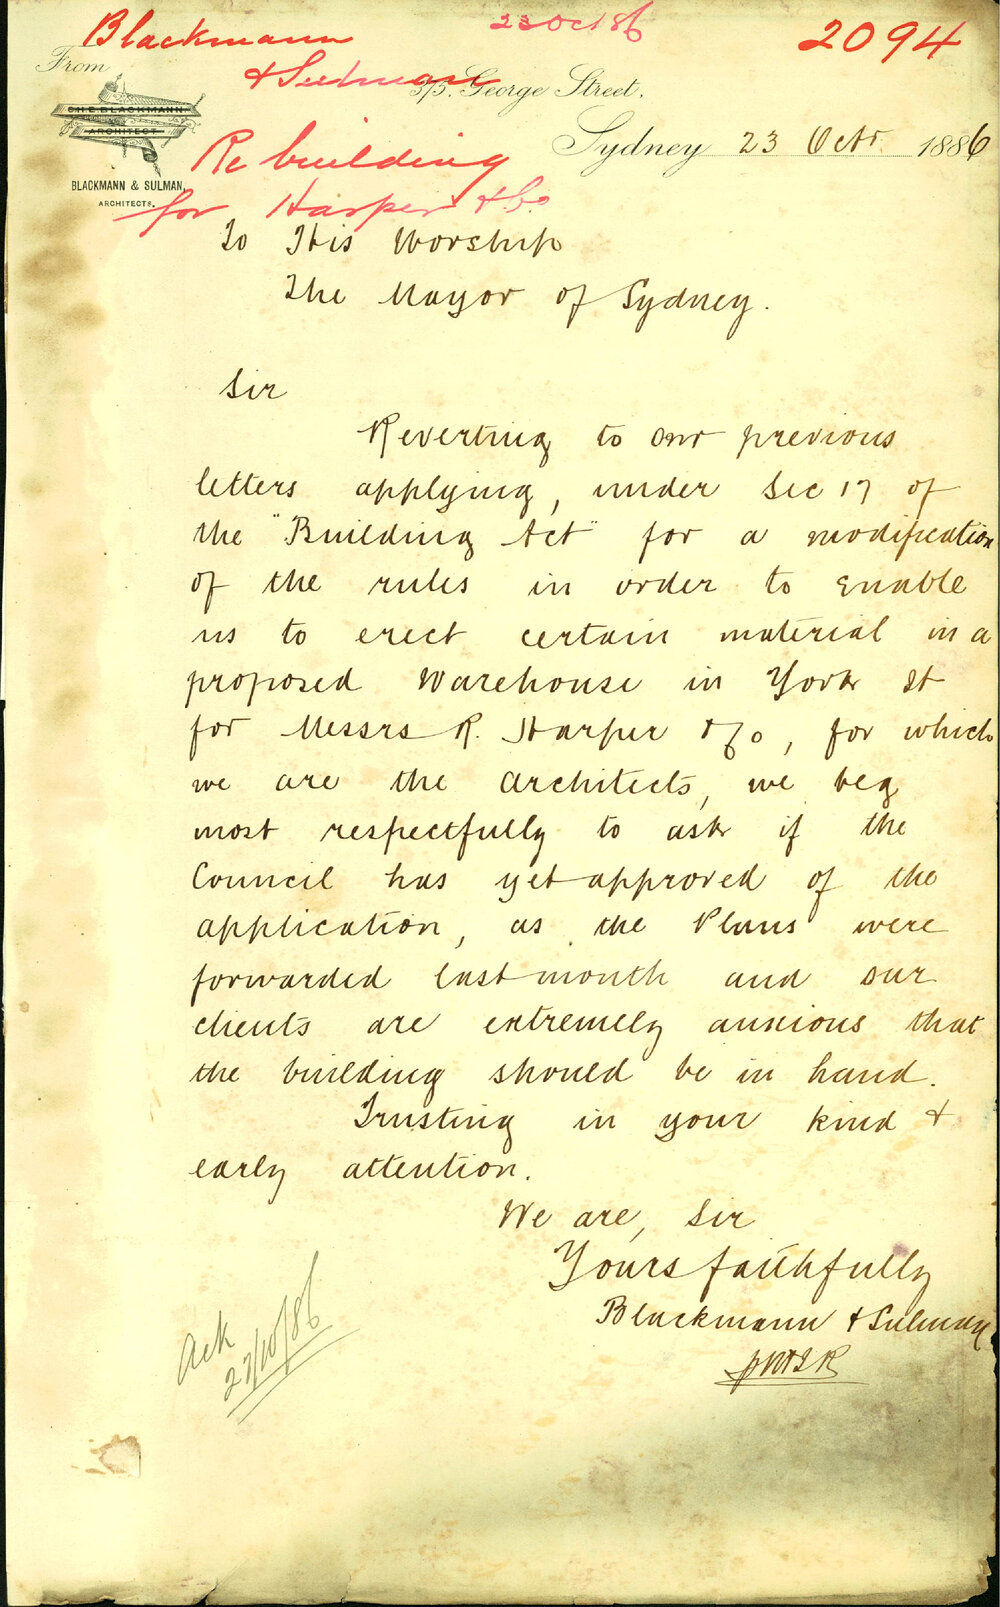 Blackmann
& Sulman
23 Oct 86
2094
From
CH. E. BLACKMANN
ARCHITECT
BLACKMANN & SULMAN,
ARCHITECTS.
375. George Street.
Sydney 23 Octr 1886
Re building
for Harper & Co
To His Worship
The Mayor of Sydney.
Sir
Reverting to our previous
letters applying, under Sec 17 of
the "Building Act" for a modification
of the rules in order to enable
us to erect certain material in a
proposed Warehouse in York St
for Messrs R. Harper & Co, for which
we are the Architects, we beg
most respectfully to ask if the
Council has yet approved of the
application, as the Plans were
forwarded last month and our
clients are extremely anxious that
the building should be in hand.
Trusting in your kind &
early attention.
We are, Sir
Yours faithfully
Blackmann & Sulman
Ack
27/10/86